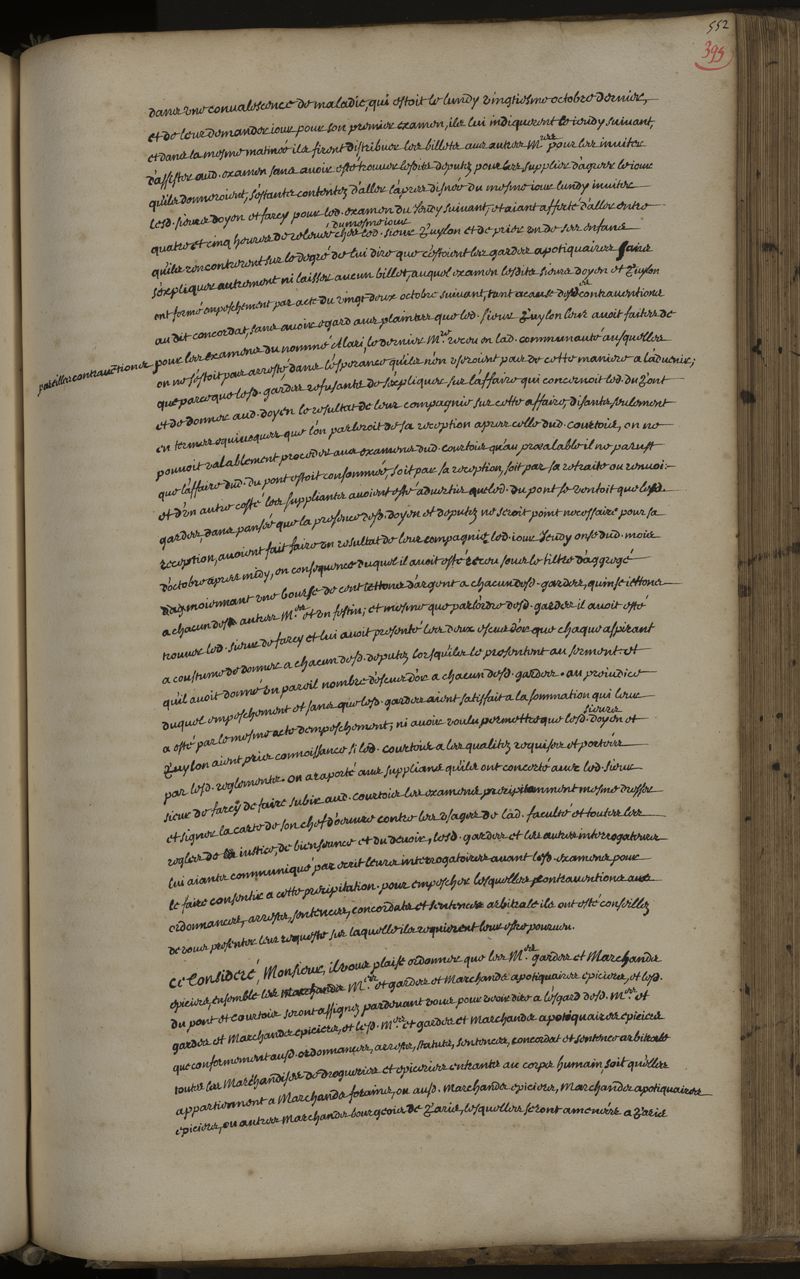 552
395
dans une convalescence de maladie, qui estoit le lundy vingtiesme octobre dernier,
et de leur demander jour pour son premier examen, ils lui indiquerent le jeudy suivant,
et dans la mesme matinée ils firent distribuer les billets aux autres M.res pour les inviter
d'assister aud. examen sans avoir esté trouver lesdits deputez pour les supplier d'agréer le jour
qu'ils donneroient, s'estants contentez d'aller l'apres disnée du mesme jour lundy inviter
lesd. sieurs doyen et farcy pour led. examen du jeudy suivant, et aiant affecté d'aller entre
du mesme jour
quatre et cinq heures de relevée chez led. sieur Puylon et de prier un de ses enfans
qu'ils rencontrerent sur le degré de lui dire que c'estoient les gardes apotiquaires sans
s'expliquer autrement ni laisser aucun billet, auquel examen lesdits sieurs doyen et Puylon
ont formé empeschement par acte du vingt deux octobre suivant, tant a cause desd. contraventions
au dit concordat, sans avoir egard aux plaintes que led. sieur Puylon leur avoit faites de
pareilles contraventions pour les examens du nommé Clari, le dernier M.re receu en lad. communauté ausquelles
on ne s'estoit pas arresté dans l'esperance qu'ils n'en useroient pas de cette maniere a l'advenir;
que parce que lesd. gardes refusants de s'expliquer sur l'affaire qui concernoit led. du Pont
et de donner aud. doyen le resultat de leur compagnie sur cette affaire, disants seulement
en termes equivoques que l'on parleroit de sa reception apres celle dud. courtois, on ne
pouvoit valablement proceder aux examens dud. courtois qu'au prealable il ne parust
que l'affaire dud. du pont estoit consommée, soit par sa reception, soit par sa retraite ou renvoi:
et d'un autre costé les suppliants avoient esté advertis que led. du pont se ventoit que lesd.
gardes, dans pensée que la presence desd. doyen et deputez ne seroit point necessaire pour sa
reception, avoient fait faire un resultat de leur compagnie led. jour jeudy onse dud. mois
d'octobre apres midy, en consequence duquel il avoit esté receu sous le tiltre d'aggregé
moiennant une bourse de cent jettons d'argent a chacun desd. gardes, quinse jettons
a chacun desd. autres M.res et un festin; et mesme que par l'ordre desd. gardes il avoit esté
trouver led. sieur de farcy et lui avoit presenté les deux escus d'or que chaque aspirant
a coustume de donner a chacun desd. deputez lorsqu'ils le presentent au serment et
qu'il avoit donné un pareil nombre d'escus d'or a chacun desd. gardes. au prejudice
duquel empeschement et sans que lesd. gardes aient satisfait a la sommation qui leur
a esté par le mesme acte d'empeschement; ni avoir voulu permettre que lesd. sieurs doyen et
Puylon aient pris connoissance si led. courtois a les qualitez requises et portées
par lesd. reglements. on a raporté aux suppliants qu'ils ont concerté avec led. sieur
sieur de farcy de faire subir aud. courtois les examens precipitamment mesme dresser
et signer la carte de son chef d'oeuvre contre les usages de lad. faculté et toutes les
regles de la justice, de bienseance et du devoir, lesd. gardes et les autres interrogateurs
lui aiants communiqué par ecrit leurs interrogatoires avant lesd. examens pour
le faire consentir a cette precipitation. pour empescher lesquelles contraventions aux
ordonnances, arrests, sentences, concordats et sentence arbitrale ils ont esté conseillez
de vous presenter leur requeste sur laquelle ils requierent leur estre pourveu.
Ce Consideré, Monsieur, il vous plaise ordonner que les M.res gardes et Marchands
epiciers, ensemble les M.res et gardes et Marchands apotiquaires epiciers, et lesd.
du pont et Courtois seront assignez pardevant vous pour voir dire a l'esgard desd. M.res et
gardes et Marchands epiciers, et lesd. M.res et gardes et Marchands apotiquaires epiciers
que conformement ausd. ordonnances, arrests, statuts, sentences, concordat et sentence arbitrale
toutes les Marchandises de drogueries et epiceries entrants au corps humain soit qu'elles
appartiennent a Marchands forains, ou ausd. Marchands epiciers, Marchands apotiquaires
epiciers, ou autres Marchands bourgeois de Paris, lesquelles seront amenées a Paris